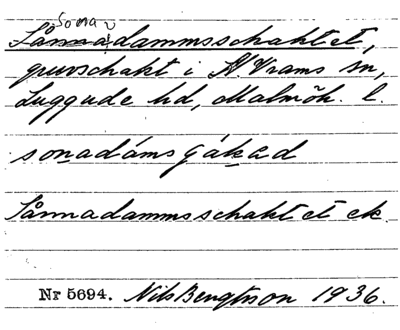 Sona
Sånnadammsschaktet,
gruvschakt i N. Vrams sn,
Luggude hd, Malmöh. l.
sonadámsgákad
Sånnadammsschaktet ek.
Nr 5694. Nils Bengtsson 1936.